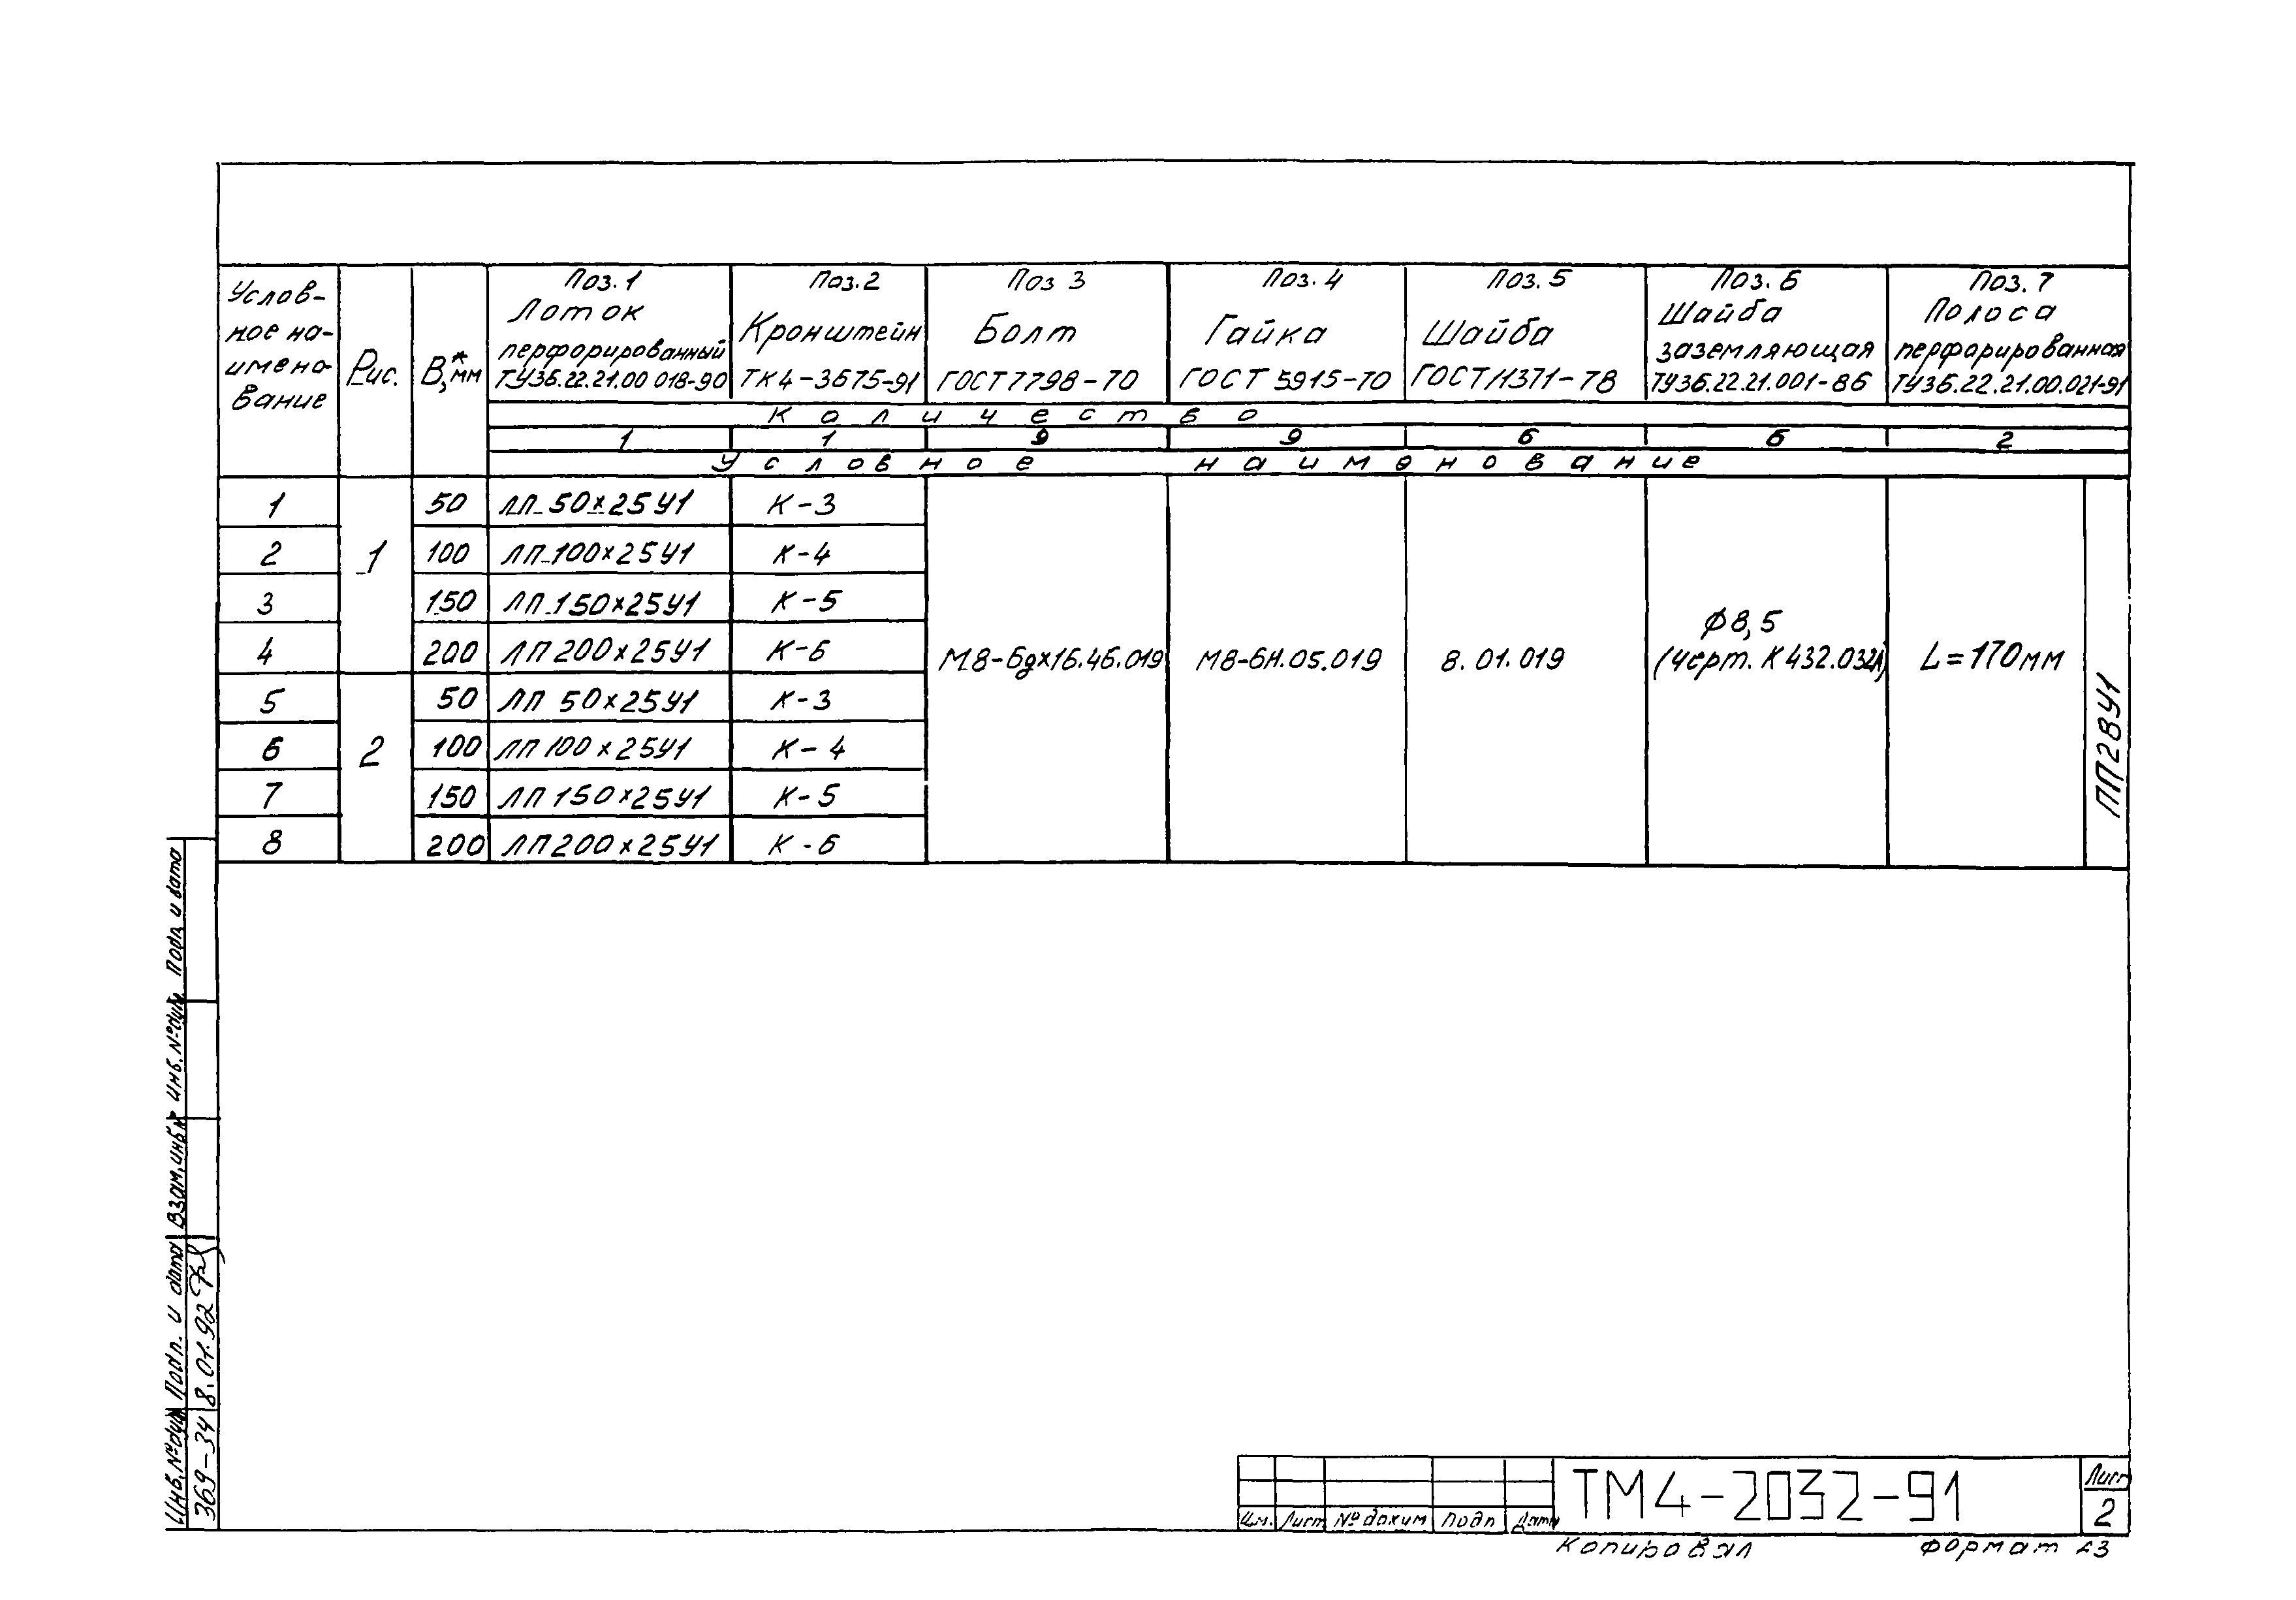 Услов-
ное на-
имено-
вание
Рис.
В,* мм
Поз. 1
Лоток
перфорированный
ТУ36.22.21.00 018-90
Поз. 2
Кронштейн
ТК4-3675-91
Поз 3
Болт
ГОСТ 7798-70
Поз. 4
Гайка
ГОСТ 5915-70
Поз. 5
Шайба
ГОСТ 11371-78
Поз. 6
Шайба
заземляющая
ТУ36.22.21.001-86
Поз. 7
Полоса
перфорированная
ТУ36.22.21.00.021-91
Количество
1 1 9 9 6 6 2
Условное наименование
1 1 50 ЛП 50×25У1 К-3
2 100 ЛП 100×25У1 К-4
3 150 ЛП 150×25У1 К-5
4 200 ЛП 200×25У1 К-6
5 2 50 ЛП 50×25У1 К-3
6 100 ЛП 100×25У1 К-4
7 150 ЛП 150×25У1 К-5
8 200 ЛП 200×25У1 К-6
М8-6g×16.46.019
М8-6Н.05.019
8.01.019
Ф8,5
(черт. К432.032А)
L=170мм
ПП28У1
Подп. и дата
Инв. № дубл.
Взам. инв №
Подп. и дата
8.01.92
Инв. № дубл
369-34
Изм. Лист № докум Подп Дата
ТМ4-2032-91
Лист
2
Копировал Формат А3